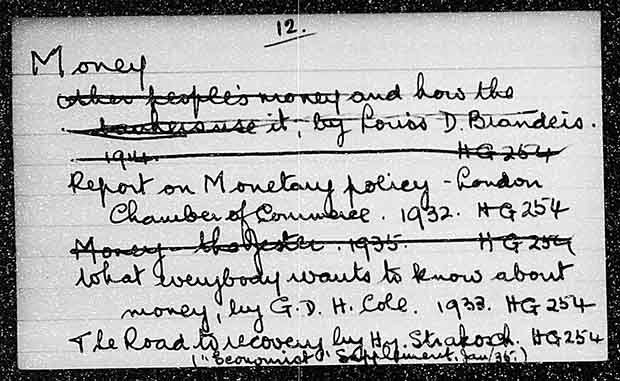 12.
Money
Other people's money and how the
bankers use it, by Louis D. Brandeis.
1914. HG 254
Report on Monetary policy - London
Chamber of Commerce. 1932. HG 254
Money - the Jester. 1935. HG 254
What everybody wants to know about
money, by G. D. H. Cole. 1933. HG 254
The Road to recovery by Hy. Strakosch. HG 254
("Economist" Supplement. Jan/35.)